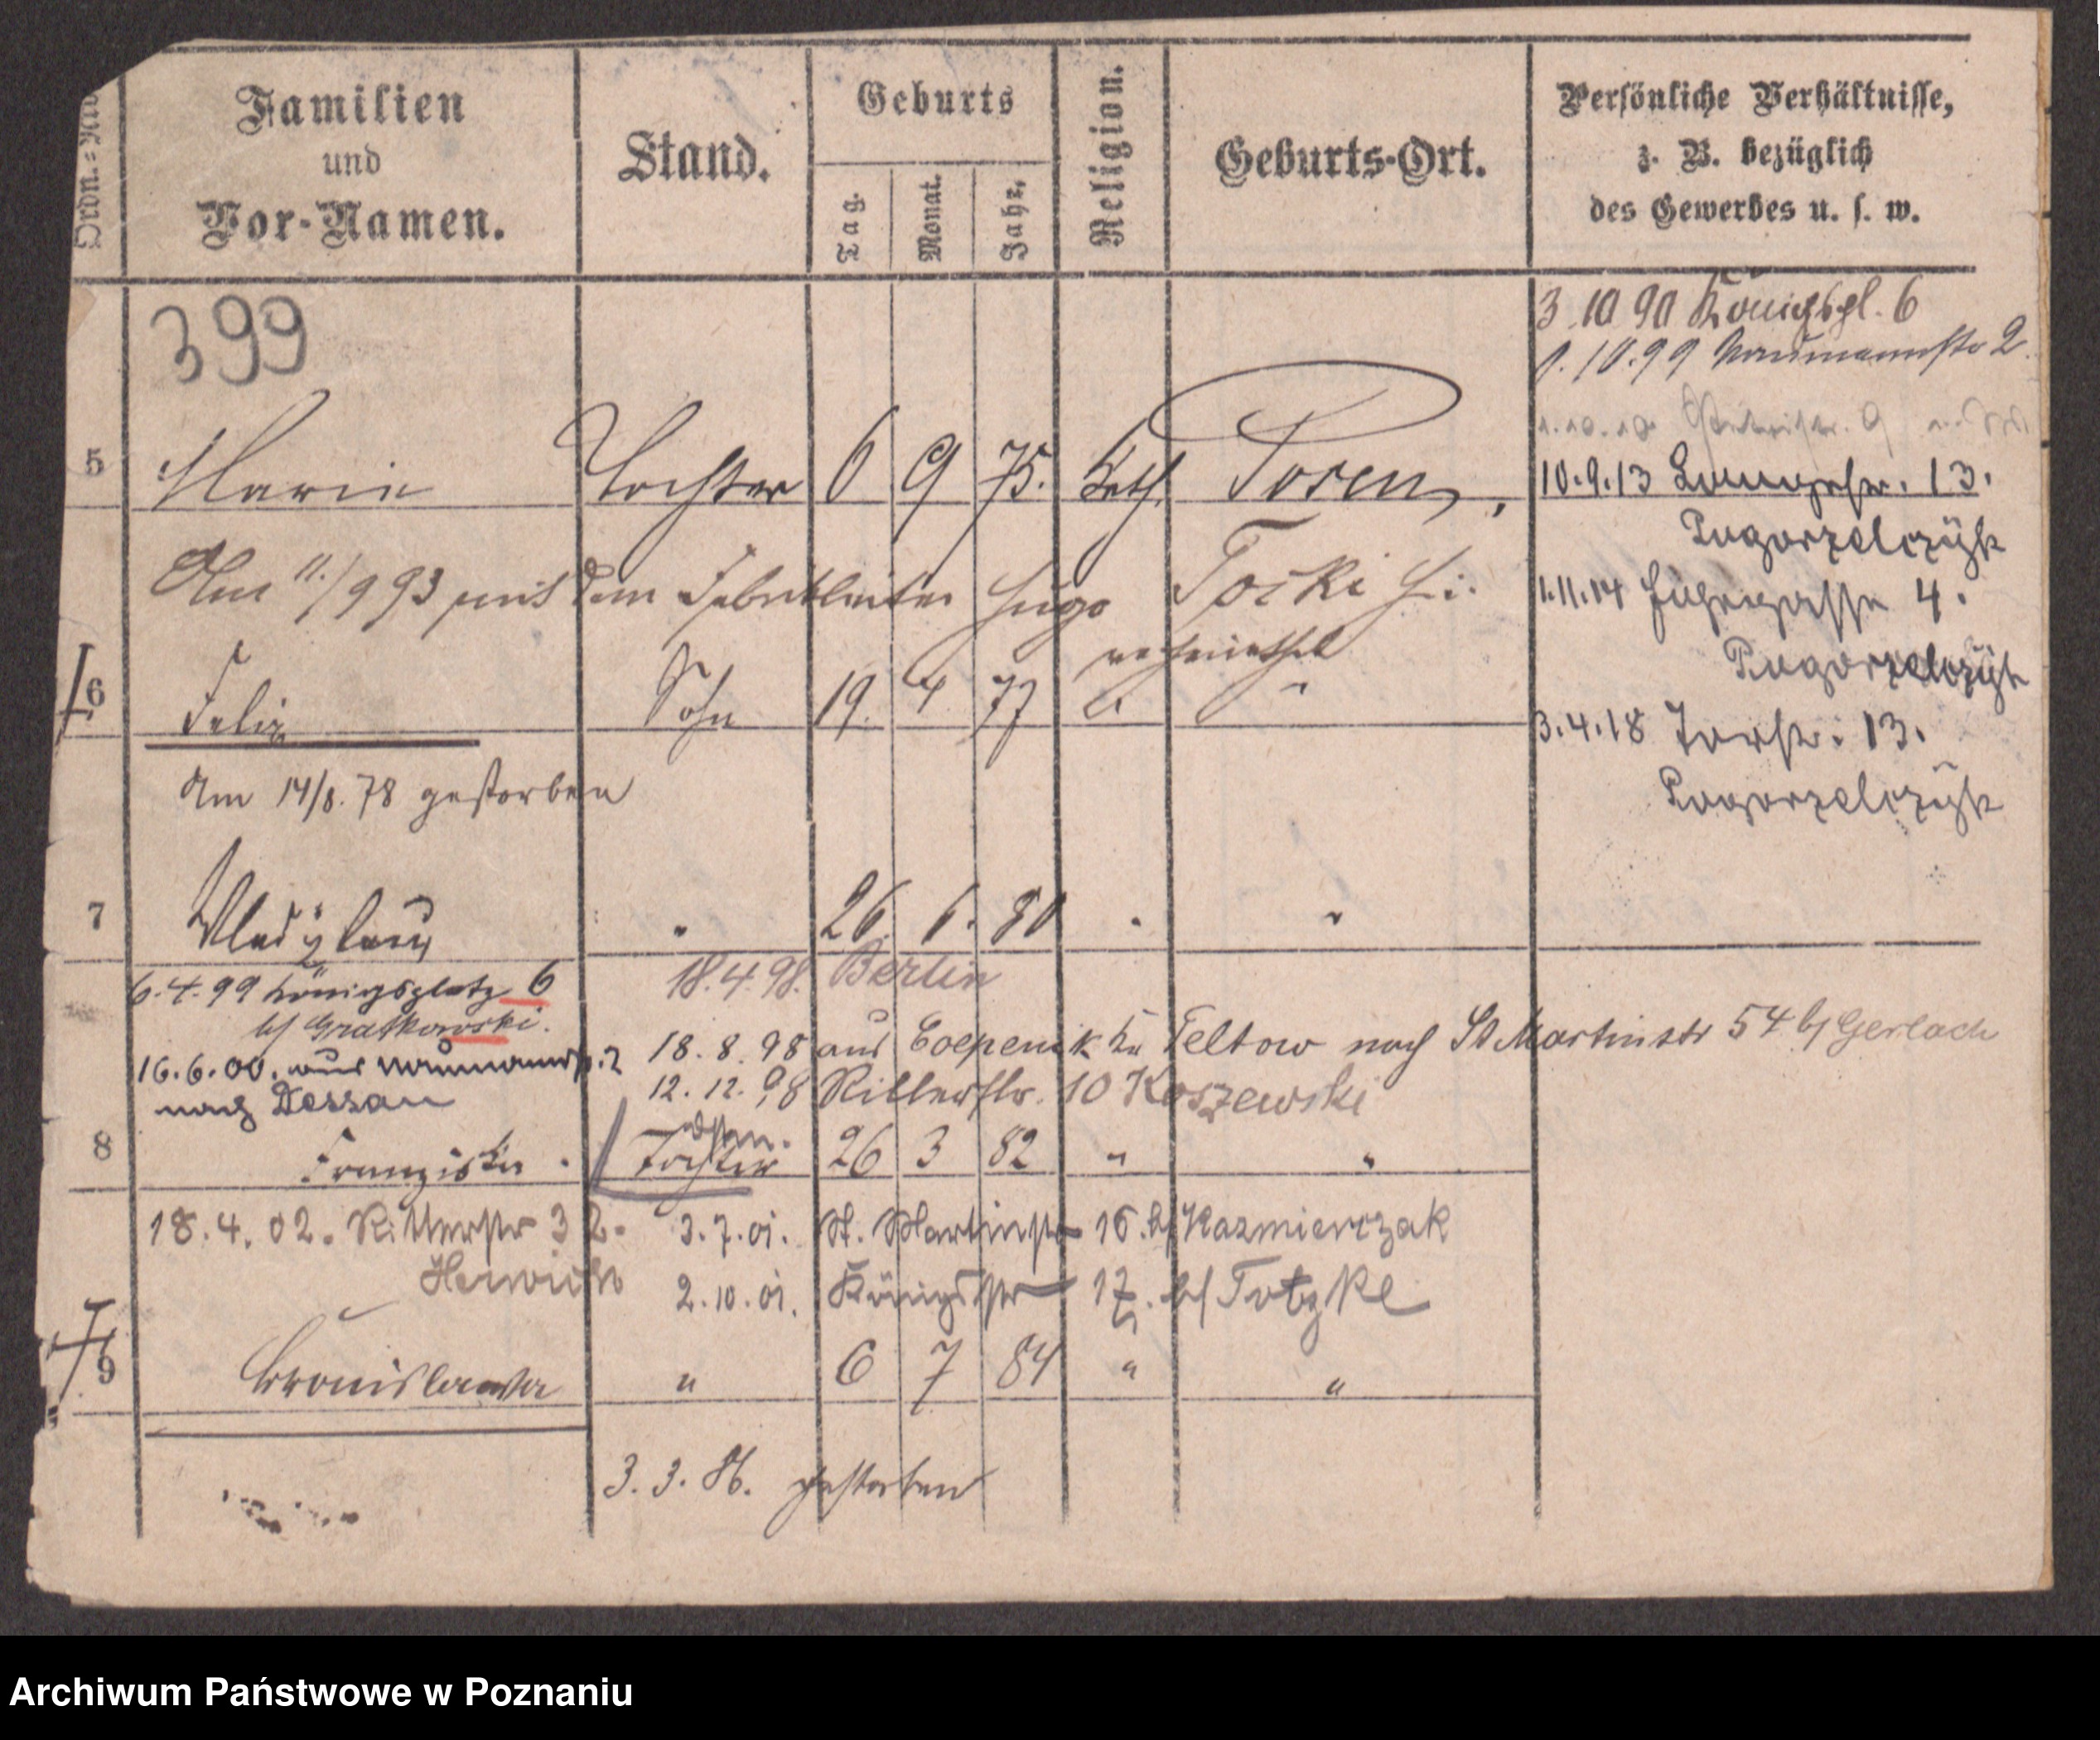 Ordn.=No
Familien
und
Vor-Namen.
Stand.
Geburts
Tag.
Monat.
Jahr.
Religion.
Geburts-Ort.
Persönliche Verhältnisse,
z. B. bezüglich
des Gewerbes u. s. w.
399
3.10 90 Königspl. 6
1.10.99 Naumannstr 2.
1.10.10
5 Marie Tochter 6 9 75. kath. Posen,
10.9.13 13.
Pogorzelczÿk
Am 11./9 93 mit dem Fabrikleiter Hugo Toski
verheirathet
1.11.14 4.
Pogorzelczÿk
6 Felix Sohn 19. 4 77 " "
3.4.18 Torstr. 13.
Pogorzelczÿk
Am 14/8. 78 gestorben
7 Wladyslaus " 26. 6. 80 " "
6.4.99 Königsplatz 6
b/ Gratkowski.
18.4.98. Berlin
16.6.00. aus Naumannstr. 2
nach Dessau
18.8.98 aus Coepenick Kr Teltow nach St Martinstr 54 b/ Gerlach
12.12.98 Ritterstr. 10 Koszewski
8 Franziska. Tochter 26 3 82 " "
18.4.02. Ritterstr 32.
3.7.01. St. Martinstr 16. b/ Kazmierczak
2.10.01. Königstr 17. b/ Totzke
9 Bronislawa " 6 7 84 " "
3.3.86. gestorben
Archiwum Państwowe w Poznaniu